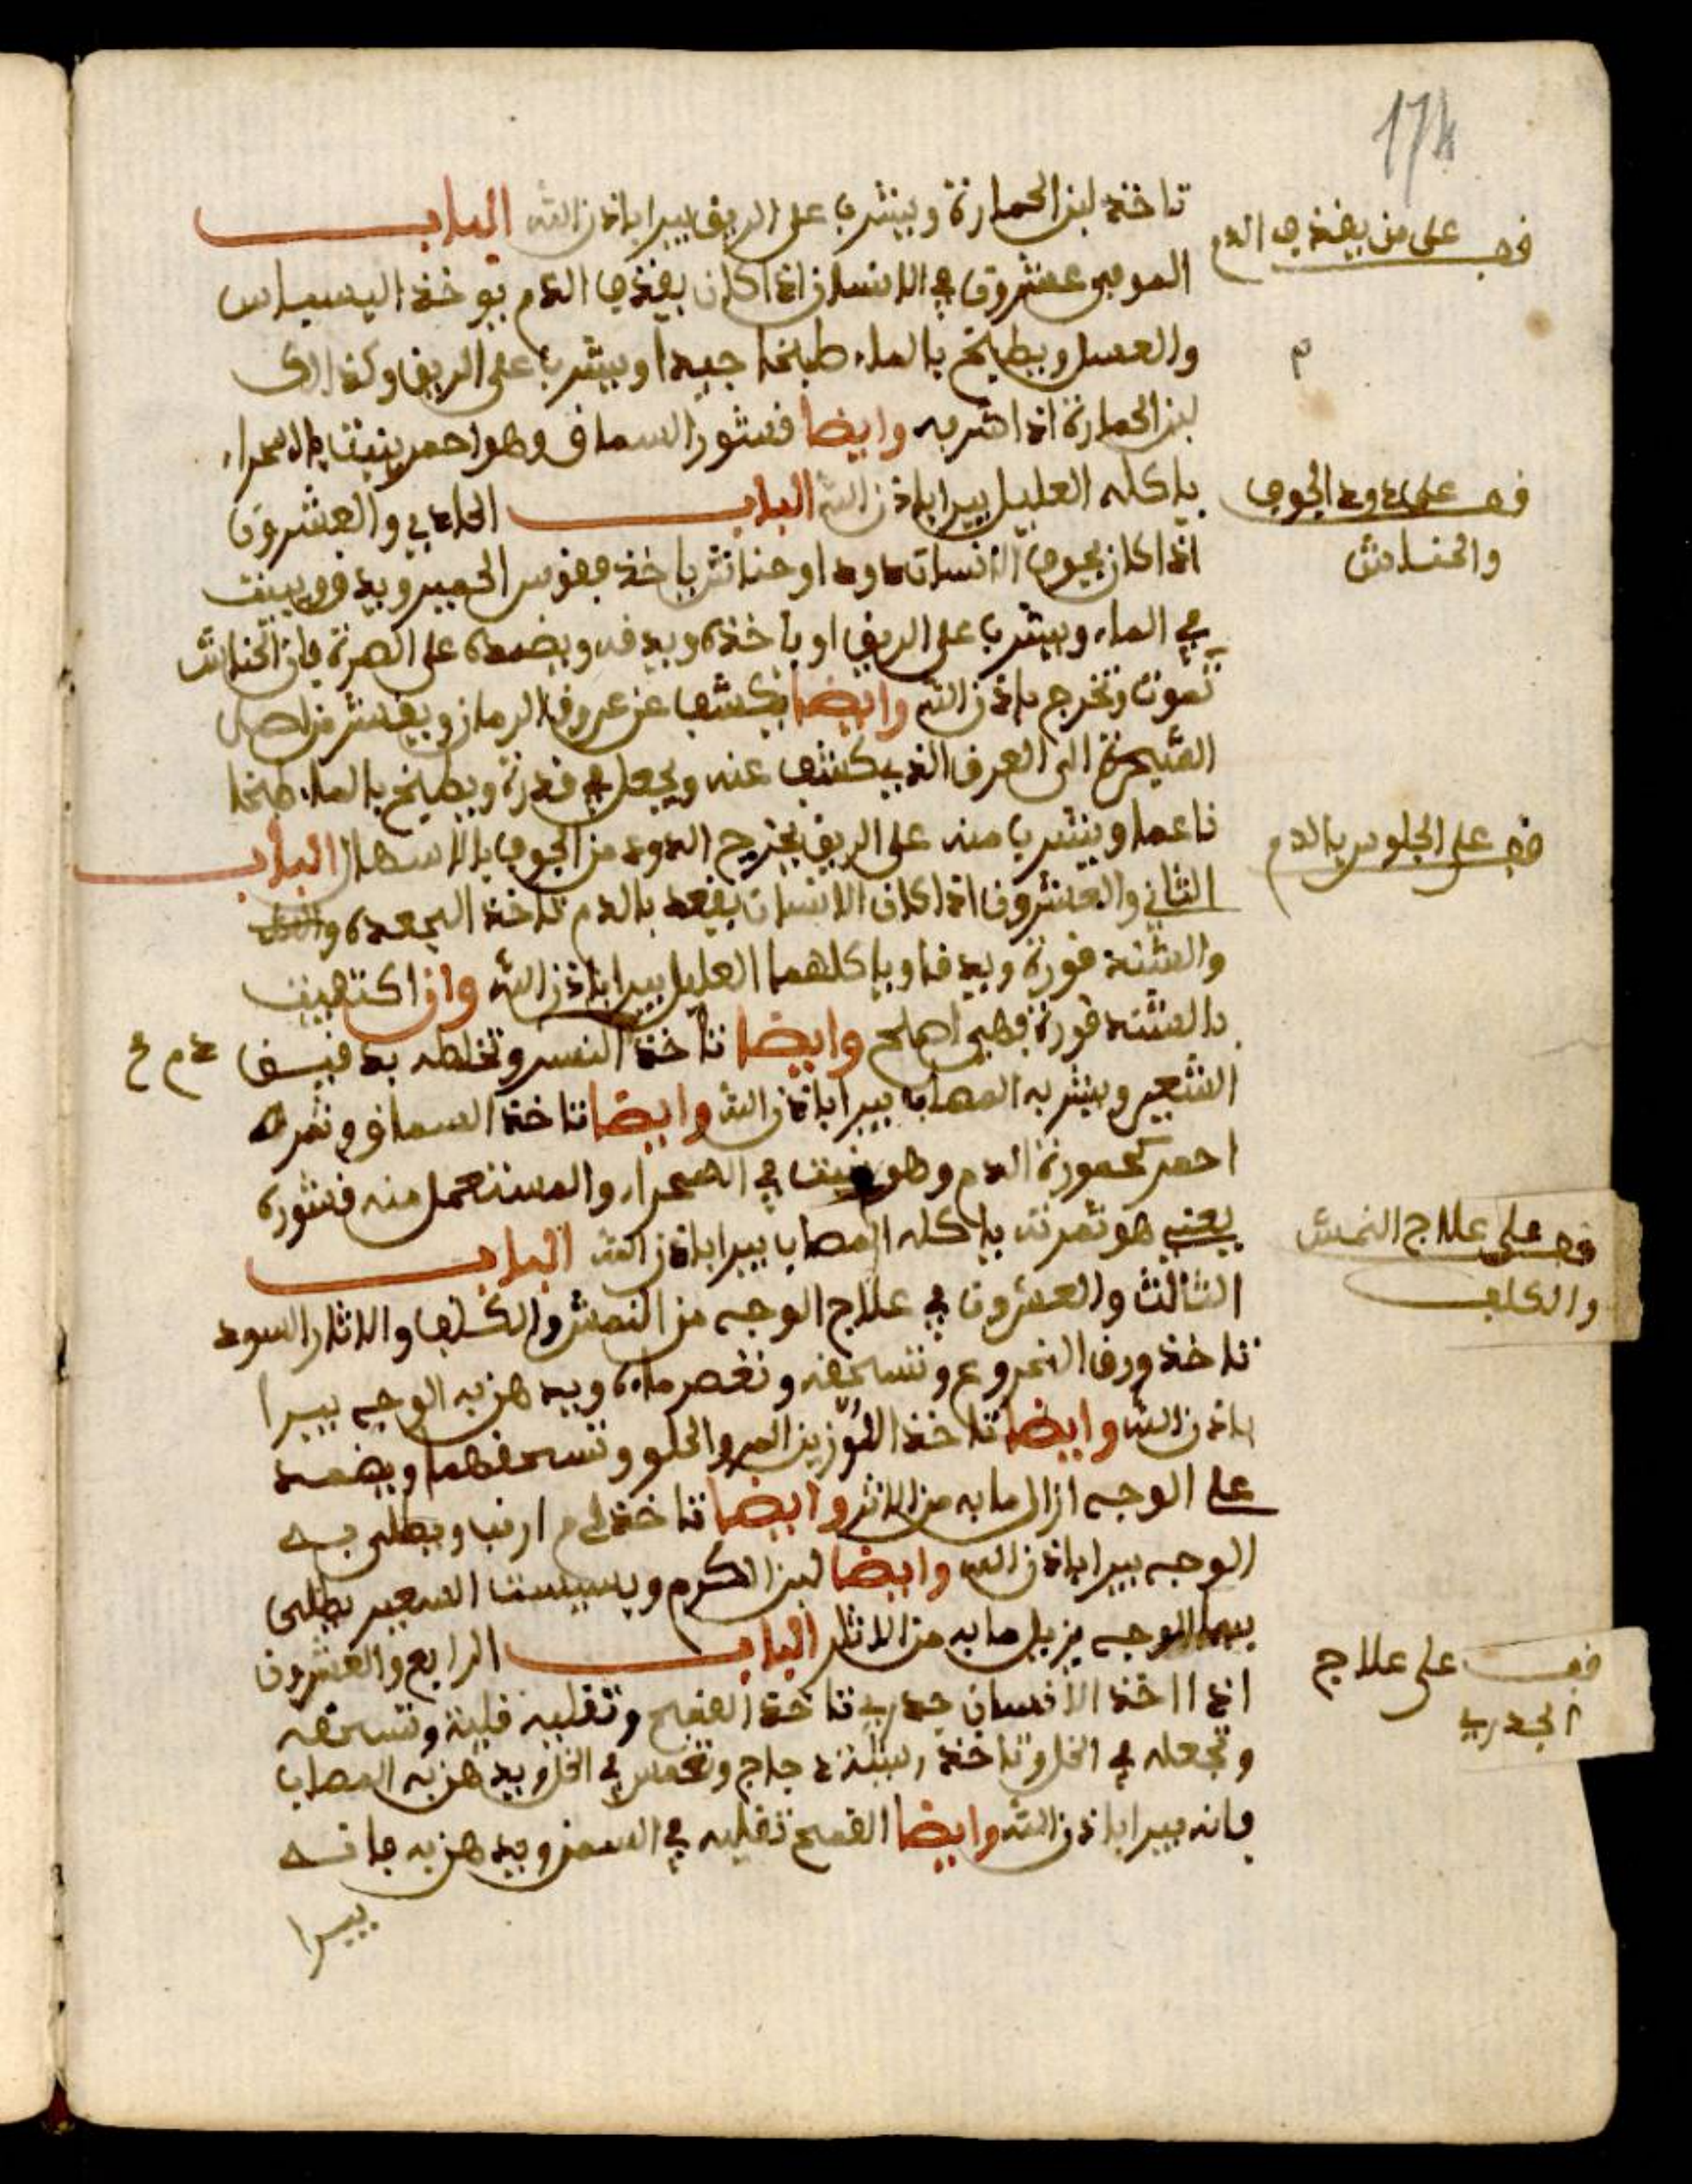 174
تاخذ لبن الحمارة ويشرب على الريق يبرا باذن الله الباب
الموفى عشرون في الانسان اذا كان يقذف الدم يوخذ البسباس
والعسل ويطبخ بالماء طبخا جيدا ويشرب على الريق وكذالك
لبن الحمارة اذا شربه وايضا قشور السماق وهو احمر ينبت بالصحراء
ياكله العليل يبرا باذن الله الباب الحادي والعشرون
اذا كان بجوف الانسان دود او حناش ياخذ فقوس الحمير ويدق ويبيت
في الماء ويشرب على الريق او ياخذه ويدقه ويضمده على الصرة فان الحناش
تموت وتخرج باذن الله وايضا يكشف عن عروق الرمان ويقشر من اصل
الشجرة الى العرق الذي يكشف عنه ويجعل في قدرة ويطبخ بالماء طبخا
ناعما ويشرب منه على الريق يخرج الدود من الجوف بالاسهال الباب
الثاني والعشرون اذا كان الانسان يقعد بالدم تاخذ الجعدة
والشندقورة ويدقا وياكلهما العليل يبرا باذن الله وان اكتفيت
بالشندقورة فهي املح وايضا تاخذ النسر وتخلطه بدقيق
الشعير ويشربه المصاب يبرا باذن الله وايضا تاخذ السماق وثمرته
احمر كحمورة الدم وهو ينبت في الصحراء والمستعمل منه قشوره
يعني هو ثمرته ياكله المصاب يبرا باذن الله الباب
الثالث والعشرون في علاج الوجه من النمش والكلف والاثار السود
تاخذ ورق الخروع وتسحقه وتعصر ماءه ويدهن به الوجه يبرا
باذن الله وايضا تاخذ اللوزين المر والحلو وتسحقهما ويضمد
على الوجه ازال ما به من الاثر وايضا تاخذ دم ارنب ويطلى به
الوجه يبرا باذن الله وايضا لبن الكرم الشعير يطلى
بهما الوجه يزيل ما به من الاثار الباب الرابع والعشرون
اذا اخذ الانسان جدري تاخذ القمح وتقليه قلية وتسحقه
وتجعله في الخل وتاخذ ريشة دجاج وتغمس في الخل ويدهن به المصاب
فانه يبرا باذن الله وايضا القمح تقليه في السمن ويدهن به فانه
يبرا
قف على من يقذف الدم
م
قف على دود الجوف
والحناش
قف على الجلوس بالدم
قف على علاج النمش
والكلف
قف على علاج
الجدري